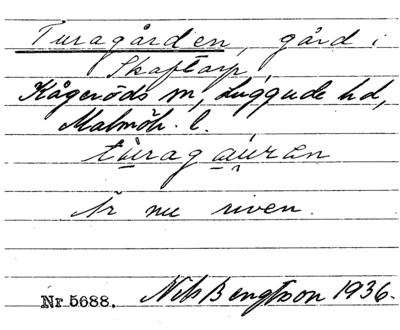 Turagården, gård i
Skaftarp,
Kågeröds sn, Luggude hd,
Malmöh. l.
tùragauṛən
Är nu riven.
Nr 5688. Nils Bengtsson 1936.